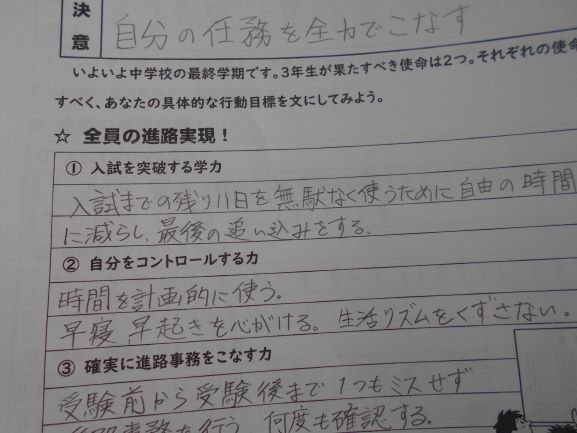 決意
自分の任務を全力でこなす
いよいよ中学校の最終学期です。3年生が果たすべき使命は2つ。それぞれの使命
すべく、あなたの具体的な行動目標を文にしてみよう。
☆ 全員の進路実現!
① 入試を突破する学力
入試までの残り11日を無駄なく使うために自由の時間
に減らし、最後の追い込みをする。
② 自分をコントロールする力
時間を計画的に使う。
早寝早起きを心がける。生活リズムをくずさない。
③ 確実に進路事務をこなす力
受験前から受験後まで1つもミスせず
事務を行う 何度も確認する。